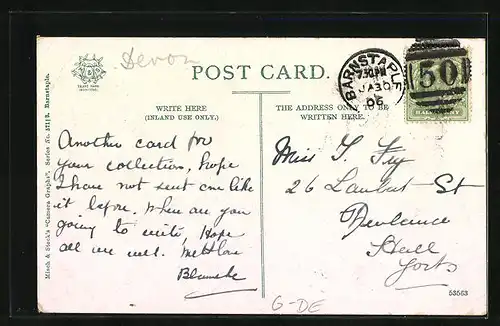 Devon
POST CARD.
TRADE MARK
BARNSTAPLE
7.30 PM
JA 30
06
50
HALFPENNY
WRITE HERE
(INLAND USE ONLY.)
THE ADDRESS ONLY TO BE
WRITTEN HERE.
Misch & Stock's "Camera Graphs". Series No. Barnstaple.
Another card for
your collection, hope
I have not sent one like
it before. When are you
going to write, Hope
all are well. love
Blanche
Miss Fry
26 Lambert St
Hull
Yorks
53563
G-DE